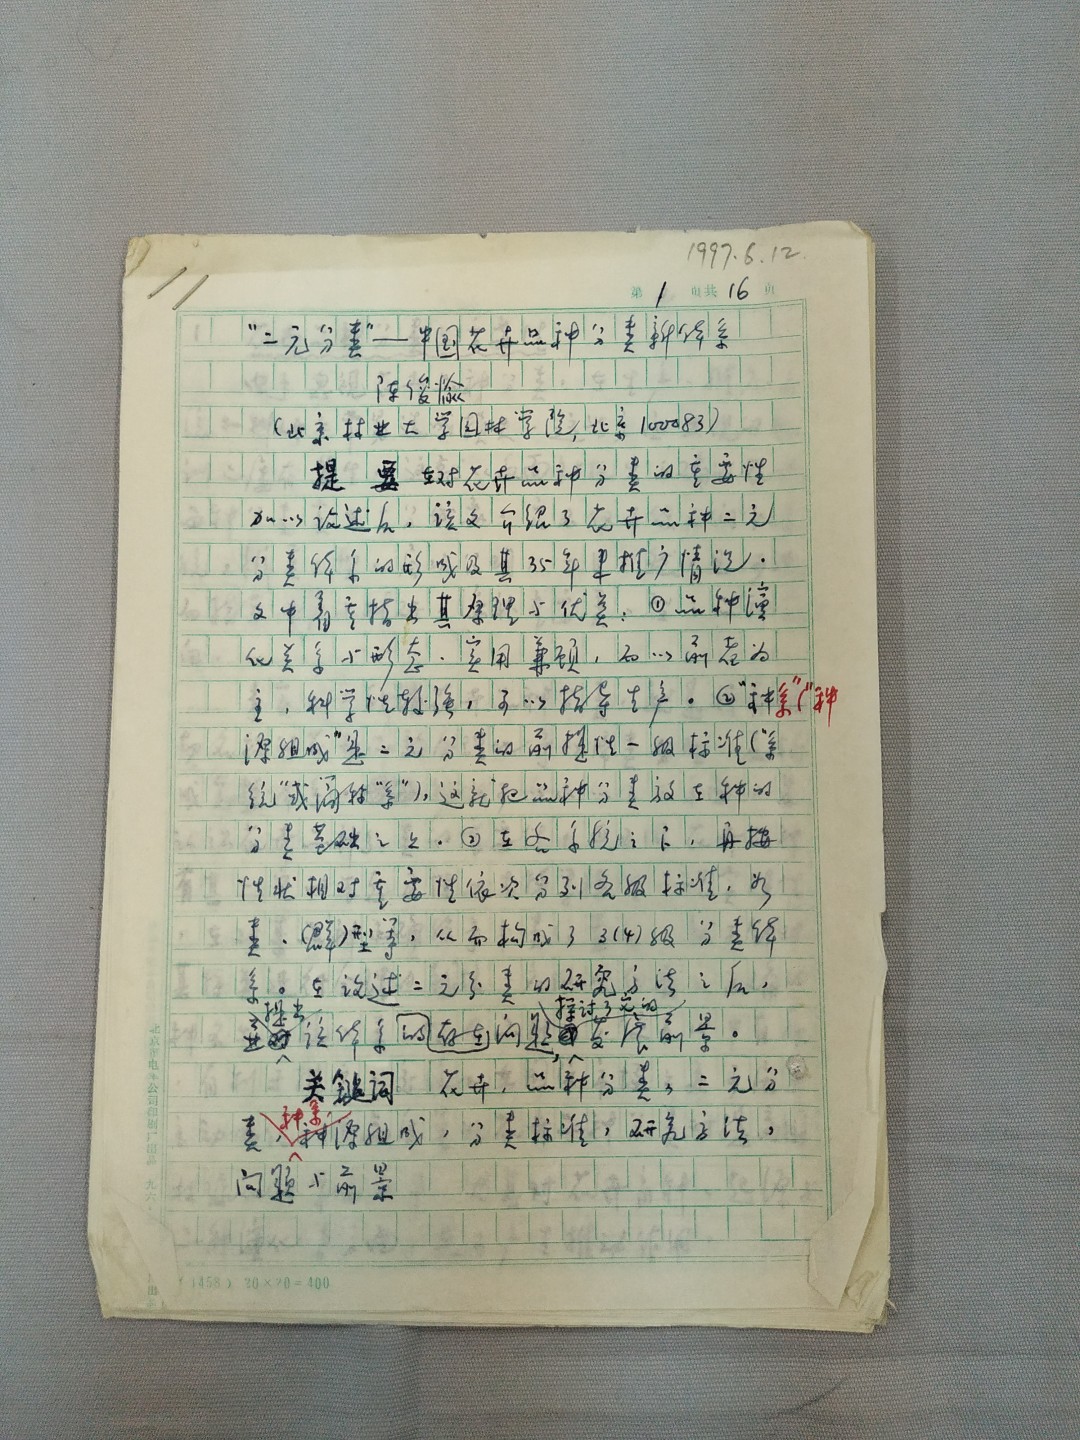 1997.6.12.
第 1 页共 16 页
"二元分类"——中国花卉品种分类新体系
陈俊愉
(北京林业大学园林学院,北京100083)
提 要 在对花卉品种分类的重要性
加以论述后,该文介绍了花卉品种二元
分类体系的形成及其35年来推广情况.
文中着重指出其原理与优点:①品种演
化关系与形态、实用兼顾,而以前者为
主,科学性较强,可以指导生产。②"种系"("种
源组成")是二元分类的前提性一级标准("系
统"或简称"系"),这就把品种分类放在种的
分类基础之上.③在各系统之下,再按
性状相对重要性依次分列各级标准,为
类、(群)型等,从而构成了3(4)级分类体
系。在论述二元分类的研究方法之后,
提出 探讨了它的
该体系的存在问题,发展前景。
关键词 花卉,品种分类,二元分
种系
类,种源组成,分类标准,研究方法,
问题与前景
(1458) 20×20=400